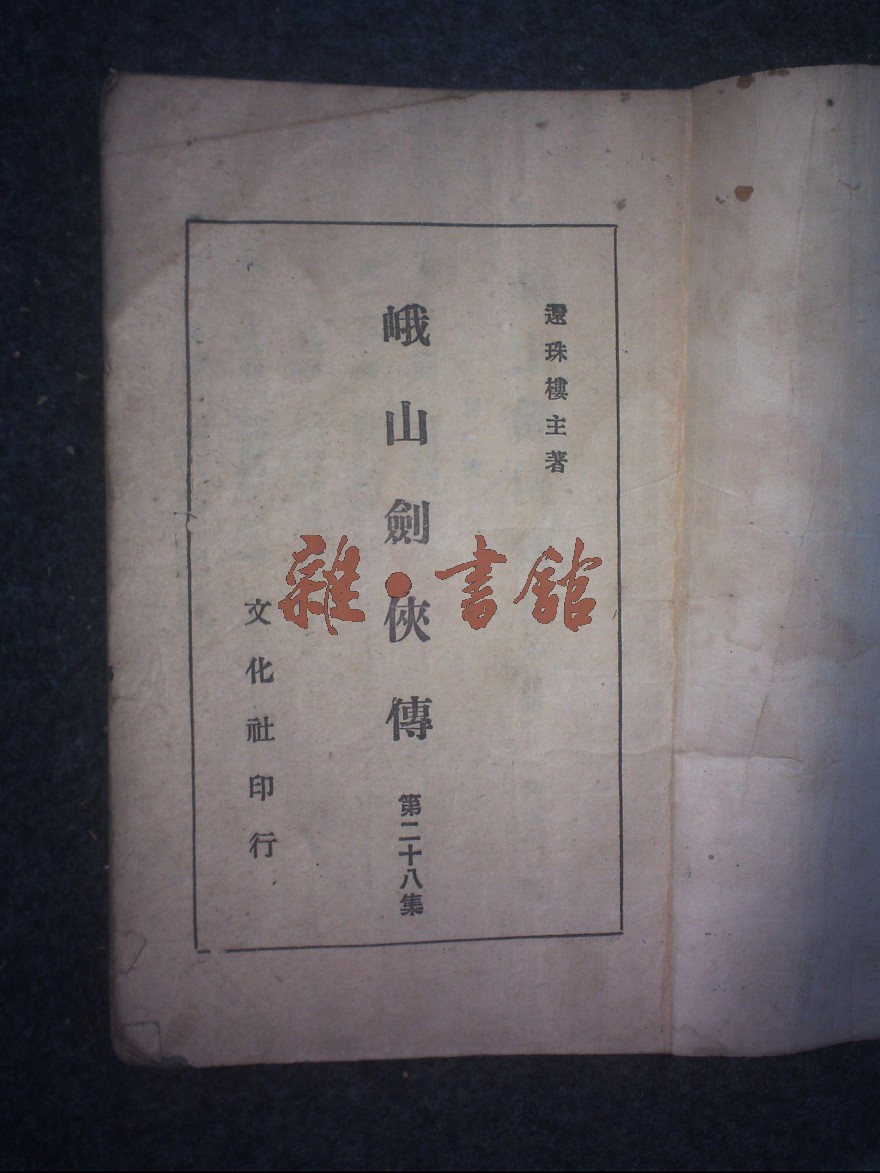 還珠樓主著
峨山劍俠傳 第二十八集
文化社印行
雜·書館